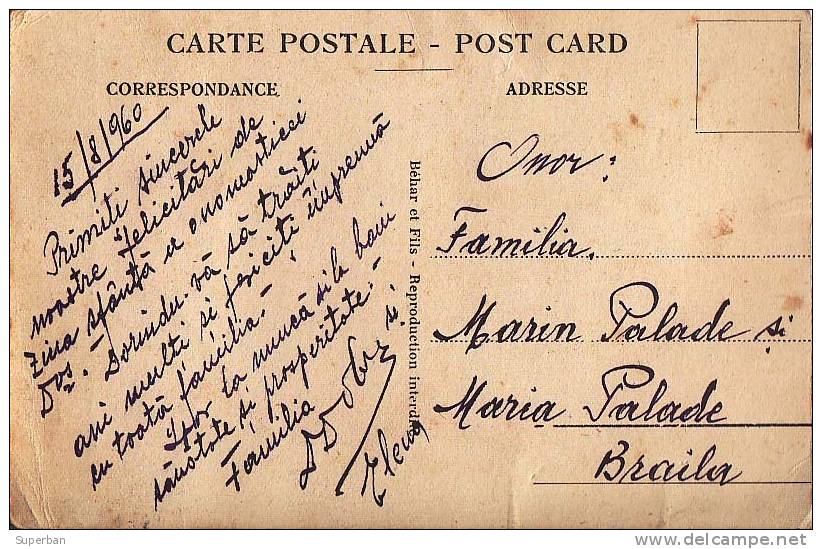 CARTE POSTALE - POST CARD
CORRESPONDANCE
ADRESSE
15/8/960
Primiți sincerele
noastre felicitări de
ziua sfântă a onomasticei
Dvs. - Dorindu vă să trăiți
ani multi si fericiti împreună
cu toată familia. -
Spor la muncă si la bani
sănătate și prosperitate. -
Familia
și
Elena
Béhar et Fils - Reproduction interdite
Onor:
Familia.
Marin Palade și
Maria Palade
Braila
Superban
delcampe.net